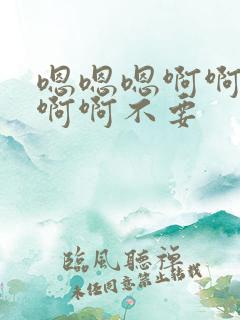 嗯嗯嗯啊啊
啊啊不要
臨風聽禪
未经同意禁止转载